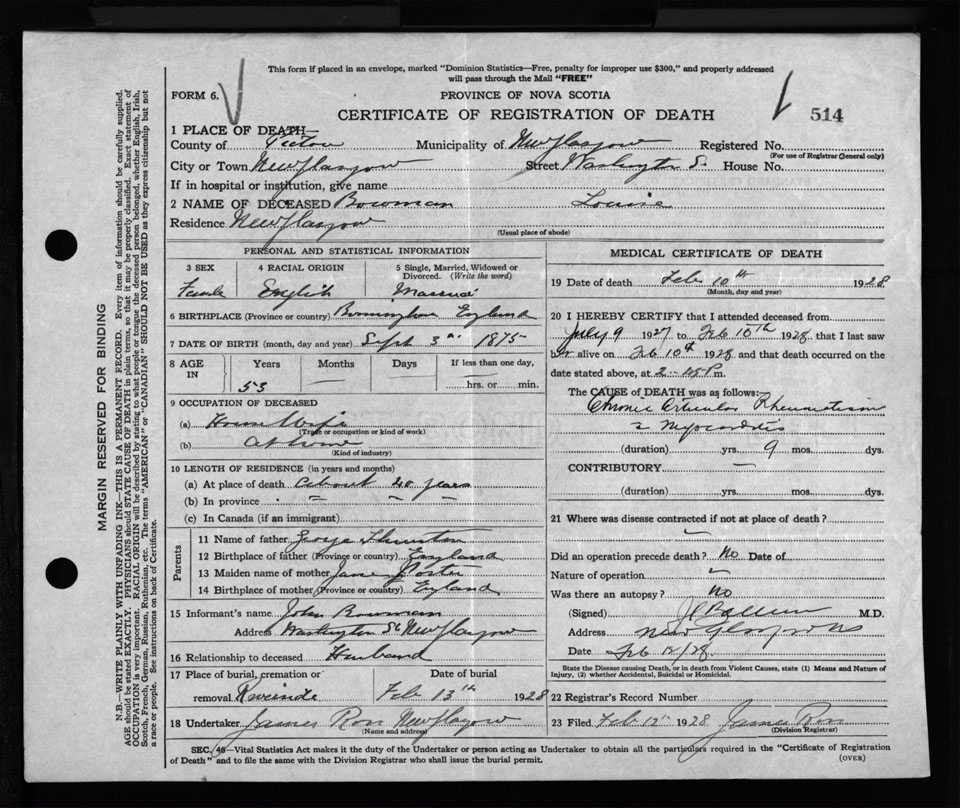 This form if placed in an envelope, marked "Dominion Statistics—Free, penalty for improper use $300," and properly addressed
will pass through the Mail "FREE"
FORM 6.
PROVINCE OF NOVA SCOTIA
CERTIFICATE OF REGISTRATION OF DEATH
514
1 PLACE OF DEATH
County of Pictou Municipality of New Glasgow Registered No.
(For use of Registrar General only)
City or Town New Glasgow Street Washington St House No.
If in hospital or institution, give name
2 NAME OF DECEASED Bowman Louise
Residence New Glasgow
(Usual place of abode)
PERSONAL AND STATISTICAL INFORMATION
3 SEX 4 RACIAL ORIGIN 5 Single, Married, Widowed or Divorced. (Write the word)
Female English Married
6 BIRTHPLACE (Province or country) Birmingham England
7 DATE OF BIRTH (month, day and year) Sept 3 1875
8 AGE IN Years Months Days If less than one day,
53 hrs. or min.
9 OCCUPATION OF DECEASED
(a) House Wife
(Trade or occupation or kind of work)
(b) At home
(Kind of industry)
10 LENGTH OF RESIDENCE (in years and months)
(a) At place of death About 20 years
(b) In province
(c) In Canada (if an immigrant)
Parents
11 Name of father George
12 Birthplace of father (Province or country) England
13 Maiden name of mother Jane
14 Birthplace of mother (Province or country) England
15 Informant's name John Bowman
Address Washington St New Glasgow
16 Relationship to deceased Husband
17 Place of burial, cremation or Date of burial
removal Feb 13th 1928
18 Undertaker James Ross New Glasgow
(Name and address)
MEDICAL CERTIFICATE OF DEATH
19 Date of death Feb 10th 1928
(Month, day and year)
20 I HEREBY CERTIFY that I attended deceased from
July 9 1927 to Feb 10th 1928 that I saw
her alive on Feb 10th 1928 and that death occurred on the
date stated above, at 2-45 P m.
The CAUSE of DEATH was as follows:
Chronic Articular Rheumatism
& Myocarditis
(duration) yrs. 9 mos. dys.
CONTRIBUTORY. —
(duration) yrs. mos. dys.
21 Where was disease contracted if not at place of death?
Did an operation precede death? No Date of
Nature of operation
Was there an autopsy? No
(Signed) M.D.
Address New Glasgow NS
Date Feb 12/28
State the Disease causing Death, or in death from Violent Causes, state (1) Means and Nature of
Injury, (2) whether Accidental, Suicidal or Homicidal.
22 Registrar's Record Number
23 Filed Feb 12th 1928 James Ross
(Division Registrar)
SEC. 46—Vital Statistics Act makes it the duty of the Undertaker or person acting as Undertaker to obtain all the particulars required in the "Certificate of Registration
of Death" and to file the same with the Division Registrar who shall issue the burial permit.
(OVER)
MARGIN RESERVED FOR BINDING
N.B.—WRITE PLAINLY, WITH UNFADING INK—THIS IS A PERMANENT RECORD. Every item of information should be carefully supplied.
AGE should be stated EXACTLY. PHYSICIANS should STATE CAUSE OF DEATH in plain terms, so that it may be properly classified. Exact statement of
OCCUPATION is very important. RACIAL ORIGIN will be described by stating to what people or tongue the deceased person belonged, whether English, Irish,
Scotch, French, German, Russian, Ruthenian, etc. The terms "AMERICAN" or "CANADIAN" SHOULD NOT BE USED as they express citizenship but not
a race or people. See instructions on back of Certificate.